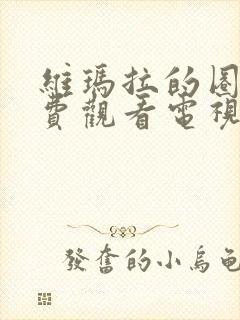 維瑪拉的困
費觀看電視
發奮的小烏龜